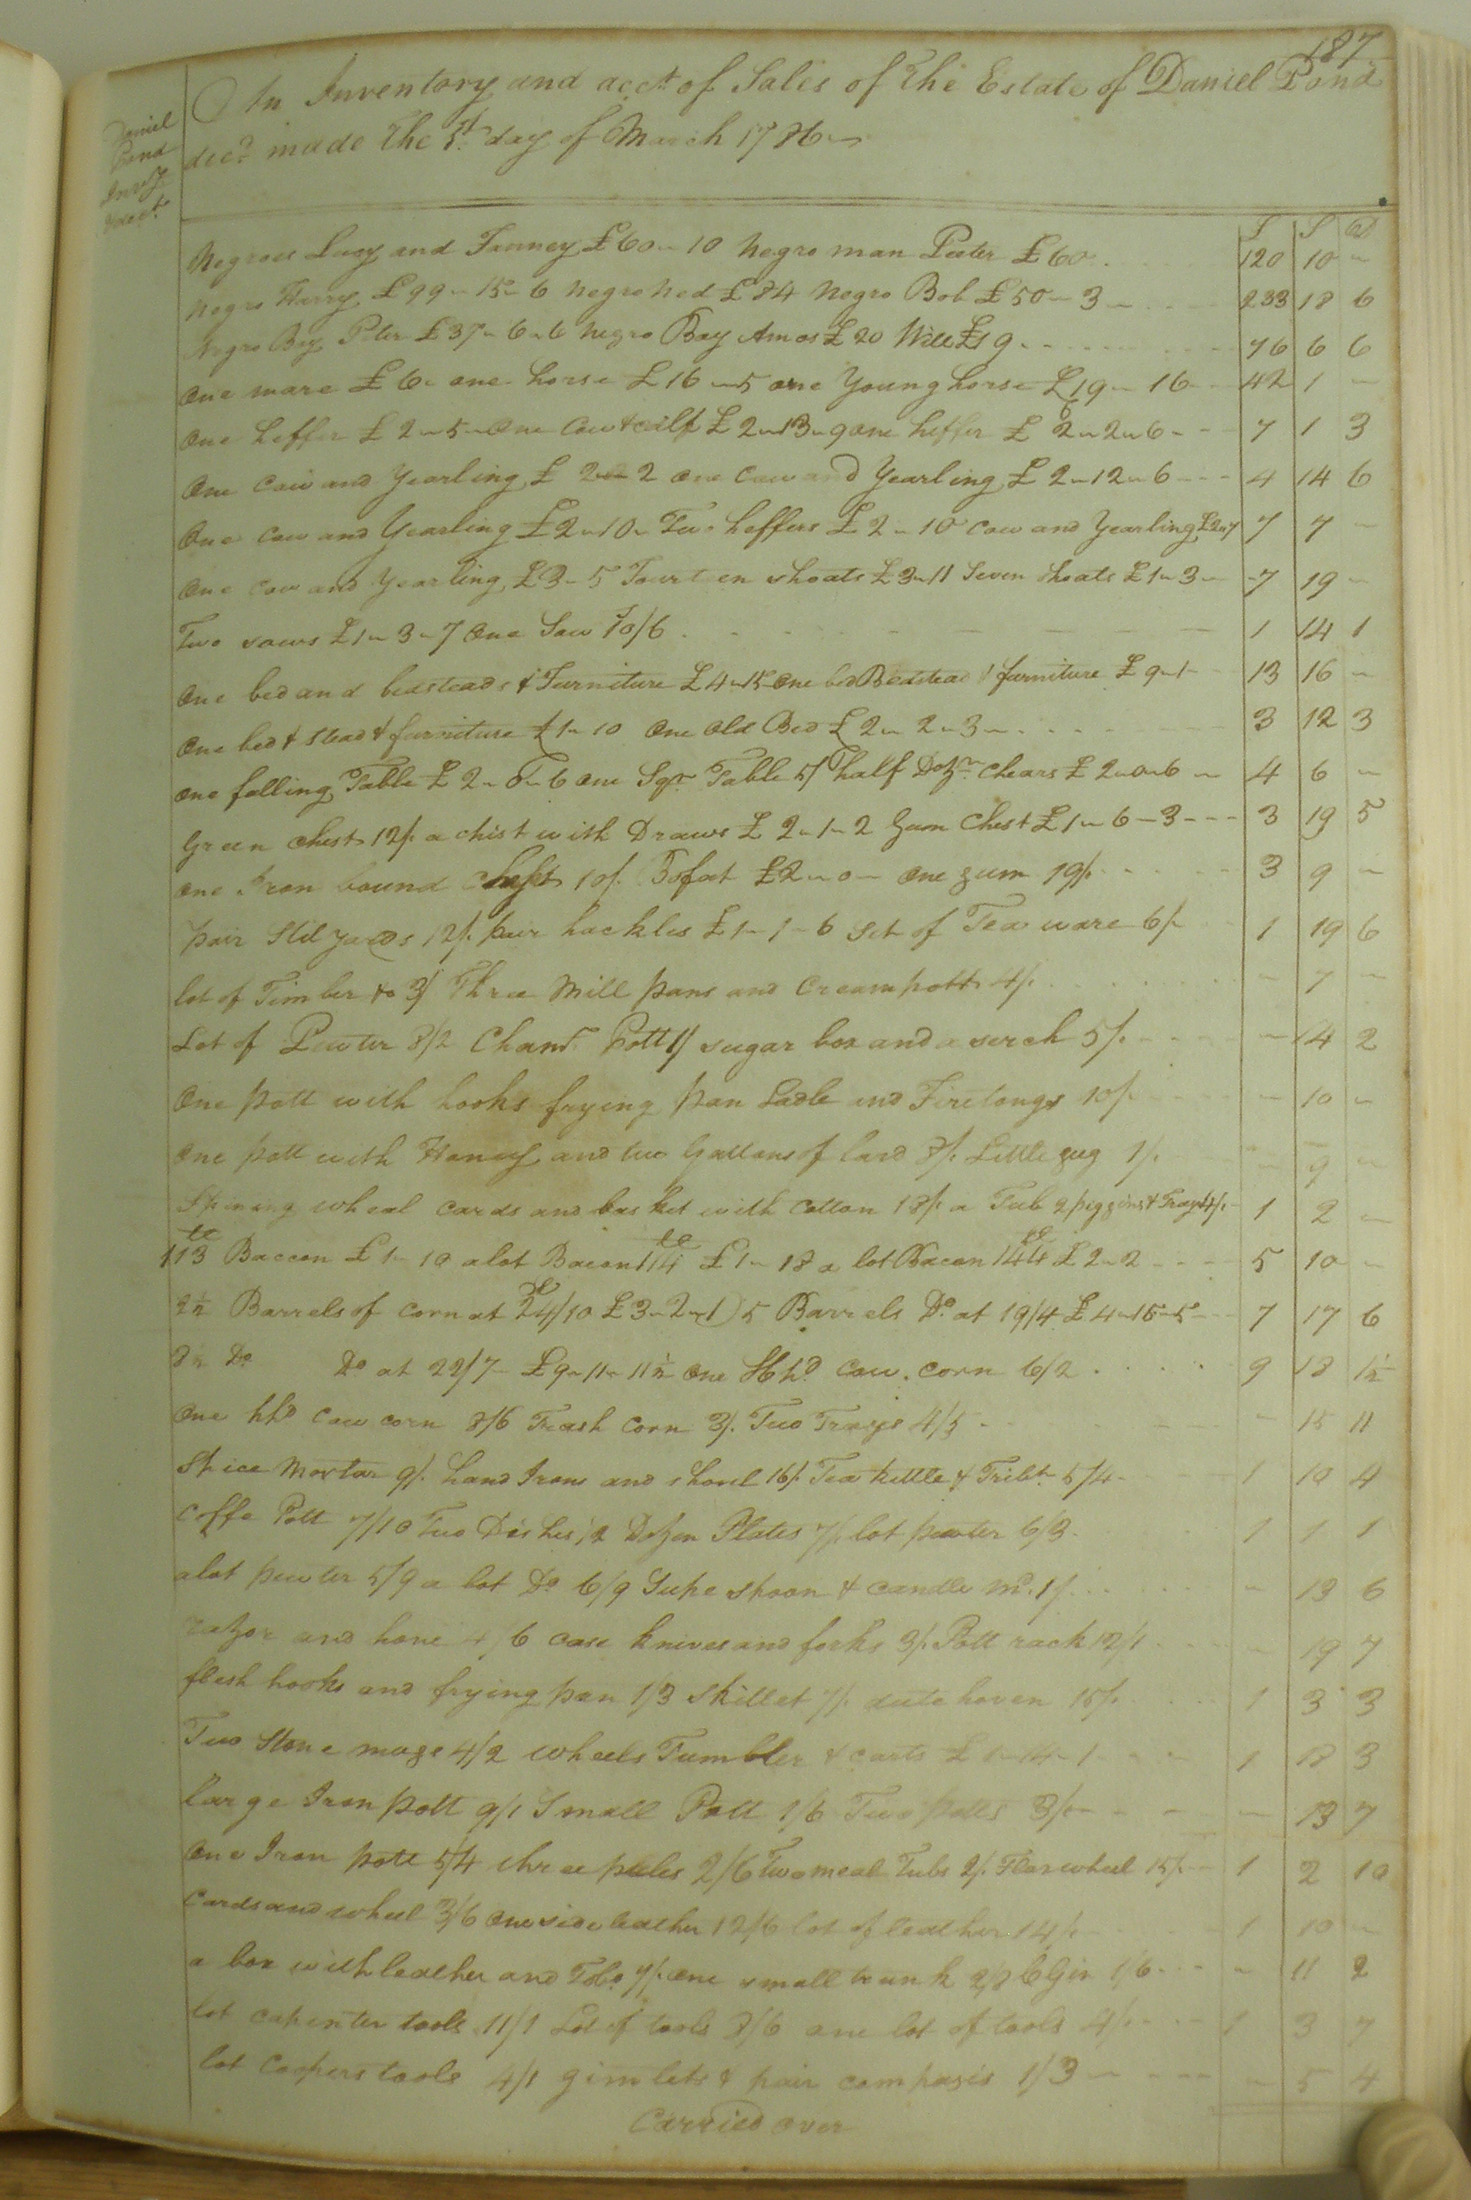 187
An Inventory and acct. of Sales of The Estate of Daniel Pond
decd. made The 1st. day of March 1786
Daniel
Pond
Invy
&acct.
£ S D
Negroes Lucy and Fanney £60 - 10 Negro man Peeter £60 . 120 10 -
Negro Harry £99 - 15 - 6 Negro Ned £84 Negro Bob £50 - 3 - 233 18 6
Negro Boy Peter £37 - 6 - 6 Negro Boy Amos £20 Will £19 - 76 6 6
One mare £6 - one horse £16 - 5 one Young horse £19 - 16 - 42 1 -
One heffer £2 - 5 - One Cow & calf £2 - 13 - 9 one heffer £2 - 2 - 6 - 7 1 3
One Cow and Yearling £2 - 2 one Cow and Yearling £2 - 12 - 6 - 4 14 6
One cow and Yearling £2 - 10 - Two heffers £2 - 10 cow and Yearling £2 - 7 7 7 -
One cow and Yearling £3 - 5 Fourten shoats £3 - 11 Seven shoats £1 - 3 - 7 19 -
Two sows £1 - 3 - 7 One Sow 10/6 . 1 14 1
One bed and bedsteads & Furniture £4 - 15 - One bed Bedstead & furniture £9 - 1 - 13 16 -
One bed & stead & furniture £1 - 10 One Old Bed £2 - 2 - 3 - 3 12 3
One falling Table £2 - 0 - 6 one Sqr. Table 5/ half Dozn. chears £2 - 0 - 6 - 4 6 -
Green chest 12/. a chist with Draws £2 - 1 - 2 Gum Chest £1 - 6 - 3 - 3 19 5
One Iron bound Chest 10/. Bofat £2 - 0 - One gum 19/. 3 9 -
pair Stilyards 12/. pair hackles £1 - 1 - 6 Set of Tea ware 6/- 1 19 6
lot of Timber &c 3/ Three Mill pans and Creampotts 4/. - 7 -
Lot of Pewter 8/2 Cham. Pott 1/ sugar box and a serch 5/. - 14 2
One pott with hooks frying pan Ladle and Firetongs 10/. - 10 -
One pott with Honey and two Gallons of lard 8/. Little gug 1/. - 9 -
Spining wheal cards and basket with cotton 18/. a Tub 2 piggins & Trays 4/. - 1 2 -
113 lb Baccon £1 - 10 a lot Bacon 114 lb £1 - 18 a lot Bacon 144 lb £2 - 2 - 5 10 -
2½ Barrels of corn at 24/10 £3 - 2 - 1 5 Barrels Do. at 19/4 £4 - 15 - 5 - 7 17 6
8½ Do Do at 22/7 - £9 - 11 - 11½ One Hhd. Cow. corn 6/2 . 9 18 1½
One hhd cow corn 8/6 Trash Corn 3/. Two Trays 4/5 - 15 11
Spice Mortar 9/. hand Irons and shovl 16/. Tea kettle & Tribt. 5/4 - 1 10 4
Coffe Pott 7/10 Two Dishes, 2 Dozen Plates 7/. lot pewter 6/3. 1 1 1
a lot pewter 5/9 a lot Do 6/9 Supe spoon & candle md. 1/. - 13 6
razor and hone 4/6 case knives and forks 3/. Pott rack 12/1 - 19 7
flesh hooks and frying pan 1/3 skillet 7/. dutchoven 15/. 1 3 3
Two Stone mugs 4/2 wheels Tumbler & carts £1 - 14 - 1 - 1 18 3
large Iron pott 9/1 Small Pott 1/6 Two potts 3/- - 13 7
One Iron pott 5/4 three pales 2/6 Two meal Tubs 2/. Flax wheel 15/. - 1 2 10
Cards and wheel 3/6 One side leather 12/6 lot of leather 14/. 1 10 -
a box with leather and Tobo. 7/. one small trunk 2/8 1/6 - 11 2
lot capenter tools 11/1 Lot of tools 8/6 one lot of tools 4/. 1 3 7
lot Coopers tools 4/1 gimlets & pair compases 1/3 - 5 4
Carried over